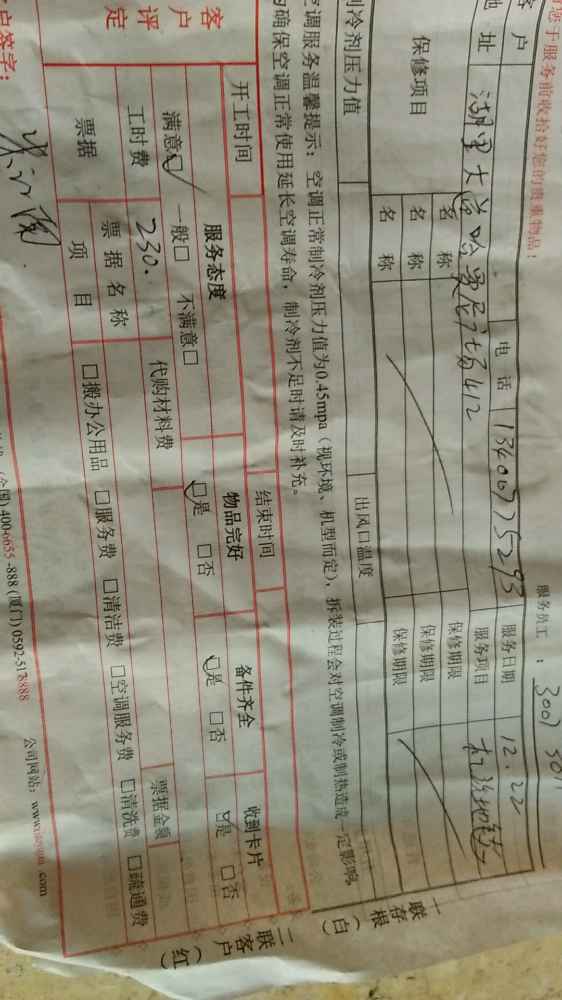 您于服务前收拾好您的贵重物品！
服务员工：3007 501
客户
电话 13400775293
服务日期 12.22
地址 湖里大道哈
412
服务项目 机洗地毯
保修项目
名称
保修期限
名称
保修期限
名称
保修期限
制冷剂压力值
出风口温度
空调服务温馨提示：空调正常制冷剂压力值为0.45mpa（视环境、机型而定），拆装过程会对空调制冷或制热造成一定影响，
为确保空调正常使用延长空调寿命，制冷剂不足时请及时补充。
一联存根（白）
二联客户（红）
开工时间
结束时间
客户评定
服务态度
物品完好
备件齐全
收到卡片
满意☑ 一般□ 不满意□
☑是 □否
☑是 □否
☑是 □否
工时费 230.
代购材料费
票据
票据名称
票据金额
项目
□搬办公用品 □服务费 □清洁费 □空调服务费 □清洗费 □疏通费
客户签字：
(全国) 400-6655-888 (厦门) 0592-5178888
公司网站：
.com